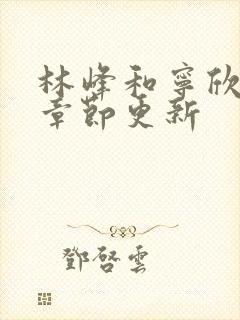 林峰和寧欣
章節更新
鄧啓雲